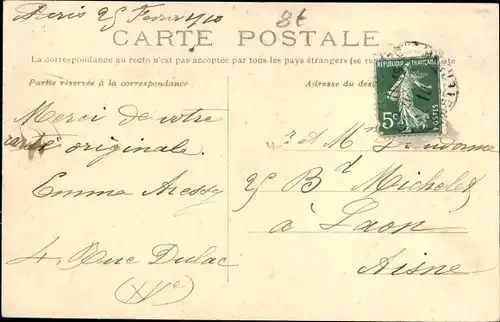 Paris 25 Fevrier 1910
8t
CARTE POSTALE
La correspondance au recto n'est pas acceptée par tous les pays étrangers (se
Partie réservée à la correspondance
Adresse du des
RÉPUBLIQUE FRANÇAISE
5c
POSTES
Merci de votre
carte originale.
Emma
4 Rue Dulac
(XVe)
Mr et Mme
25 Bd Michelet
à Laon
Aisne